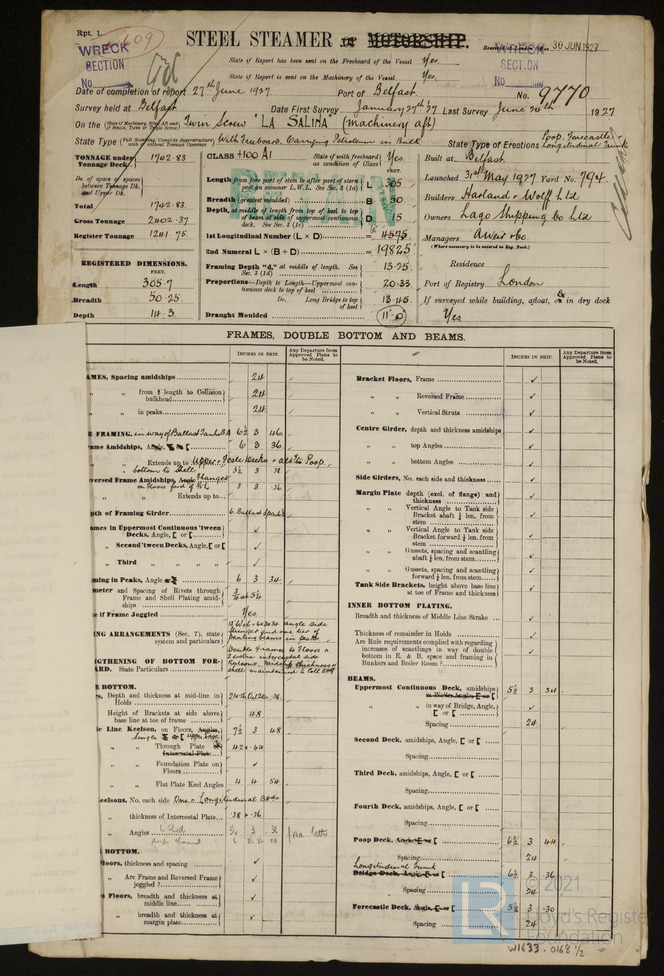 Rpt. 1.
STEEL STEAMER or MOTORSHIP.
30 JUN 1927
WRECK SECTION
No
WRECK SECTION
No
State if Report has been sent on the Freeboard of the Vessel Yes.
State if Report is sent on the Machinery of the Vessel Yes.
Date of completion of report 27th June 1927 Port of Belfast No. 9770
Survey held at Belfast Date First Survey January 27th 27 Last Survey June 24th 1927
On the Twin Screw "LA SALINA" (Machinery aft)
State Type With Freeboard. Carrying Petroleum in Bulk State Type of Erections Poop, Forecastle & Longitudinal Trunk
TONNAGE under Tonnage Deck 1742.83
Do. of space or spaces between Tonnage Dk. and Upper Dk.
Total 1742.83
Gross Tonnage 2402.37
Register Tonnage 1241.75
REGISTERED DIMENSIONS.
FEET.
Length 305.7
Breadth 50.25
Depth 14.3
CLASS +100 A1 State if with freeboard as condition of Class Yes.
RETAIN
Length from fore part of stem to after part of stern post on summer L.W.L. See Sec. 3 (1a) L 305
Breadth (greatest moulded) B 50
Depth, at middle of length from top of keel to top of beam at side of uppermost continuous deck. See Sec. 3 (1c) D 15
1st Longitudinal Number (L × D) = 4575
2nd Numeral L × (B + D) = 19825
Framing Depth "d," at middle of length. See Sec. 3 (1d) 13.75
Proportions—Depth to Length—Uppermost continuous deck to top of keel 20.33
Do. Long Bridge to top of keel 13.45
Draught Moulded 11'-0
Built at Belfast
Launched 31st May 1927 Yard No. 794
Builders Harland & Wolff Ltd
Owners Lago Shipping Co Ltd
Managers A Weir & Co.
(Where necessary to be entered in Reg. Book.)
Residence
Port of Registry London
If surveyed while building, afloat, & in dry dock
Yes
FRAMES, DOUBLE BOTTOM AND BEAMS.
INCHES IN SHIP.
Any Departure from Approved Plans to be Noted.
INCHES IN SHIP.
Any Departure from Approved Plans to be Noted.
AMES, Spacing amidships 24
" " from ⅕ length to Collision bulkhead 24
" " in peaks 24
E FRAMING, in way of Ballast Tanks 6½ 3 .46
ame Amidships, Angle 6 3 36
" " Extends up to Upper & Fcsle Decks & aft to Poop
bottom to Shell 5½ 3 .38
versed Frame Amidships, Angle Flanges 3 3 .36
" " Extends up to
pth of Framing Girder
ames in Uppermost Continuous 'tween Decks, Angle, [ or [ ✓
" Second 'tween Decks, Angle, [ or [ ✓
" Third " " " " ✓
ming in Peaks, Angle 6 3 34
meter and Spacing of Rivets through Frame and Shell Plating amidships
e if Frame Joggled Yes.
NG ARRANGEMENTS (Sec. 7), state system and particulars
GTHENING OF BOTTOM FORWARD. State Particulars
E BOTTOM.
rs, Depth and thickness at mid-line in Holds
Height of Brackets at side above base line at toe of frame 48
e Line Keelson, on Floors, 7½ 3 48
" " Through Plate 42 × .44
Intercostal Plate
" " Foundation Plate on Floors ✓
" " Flat Plate Keel Angles 4 4 54
eelsons, No. each side One & Longitudinal Bhds
" thickness of Intercostal Plate .38 & .36
" Angles
E BOTTOM.
loors, thickness and spacing ✓
" Are Frame and Reversed Frame joggled? ✓
t Floors, breadth and thickness at middle line ✓
" breadth and thickness at margin plate ✓
Bracket Floors, Frame ✓
" " Reversed Frame ✓
" " Vertical Struts ✓
Centre Girder, depth and thickness amidships ✓
" " top Angles ✓
" " bottom Angles ✓
Side Girders, No. each side and thickness ✓
Margin Plate depth (excl. of flange) and thickness ✓
" " Vertical Angle to Tank side Bracket abaft ¼ len. from stem ✓
" " Vertical Angle to Tank side Bracket forward ¼ len. from stem ✓
" " Gussets, spacing and scantling abaft ¼ len. from stem ✓
" " Gussets, spacing and scantling forward ¼ len. from stem ✓
Tank Side Brackets, height above base line at toe of Frame and thickness ✓
INNER BOTTOM PLATING.
Breadth and thickness of Middle Line Strake ✓
Thickness of remainder in Holds ✓
Are Rule requirements complied with regarding increases of scantlings in way of double bottom in E. & B. space and framing in Bunkers and Boiler Room? ✓
BEAMS.
Uppermost Continuous Deck, amidships 5½ 3 34
" " in way of Bridge, Angle, [ or [ ✓
Spacing 24
Second Deck, amidships, Angle, [ or [
Spacing
Third Deck, amidships, Angle, [ or [
Spacing
Fourth Deck, amidships, Angle, [ or [
Spacing
Poop Deck, Angle, [ or [ 6½ 3 44
Spacing 24
Longitudinal Trunk
Bridge Deck, Angle, [ or [ 6½ 3 .36
Spacing 24
Forecastle Deck, Angle, [ or [ 5½ 3 .30
Spacing 24
LR
© 2021
Lloyd's Register
Foundation
W1633-0168 ½